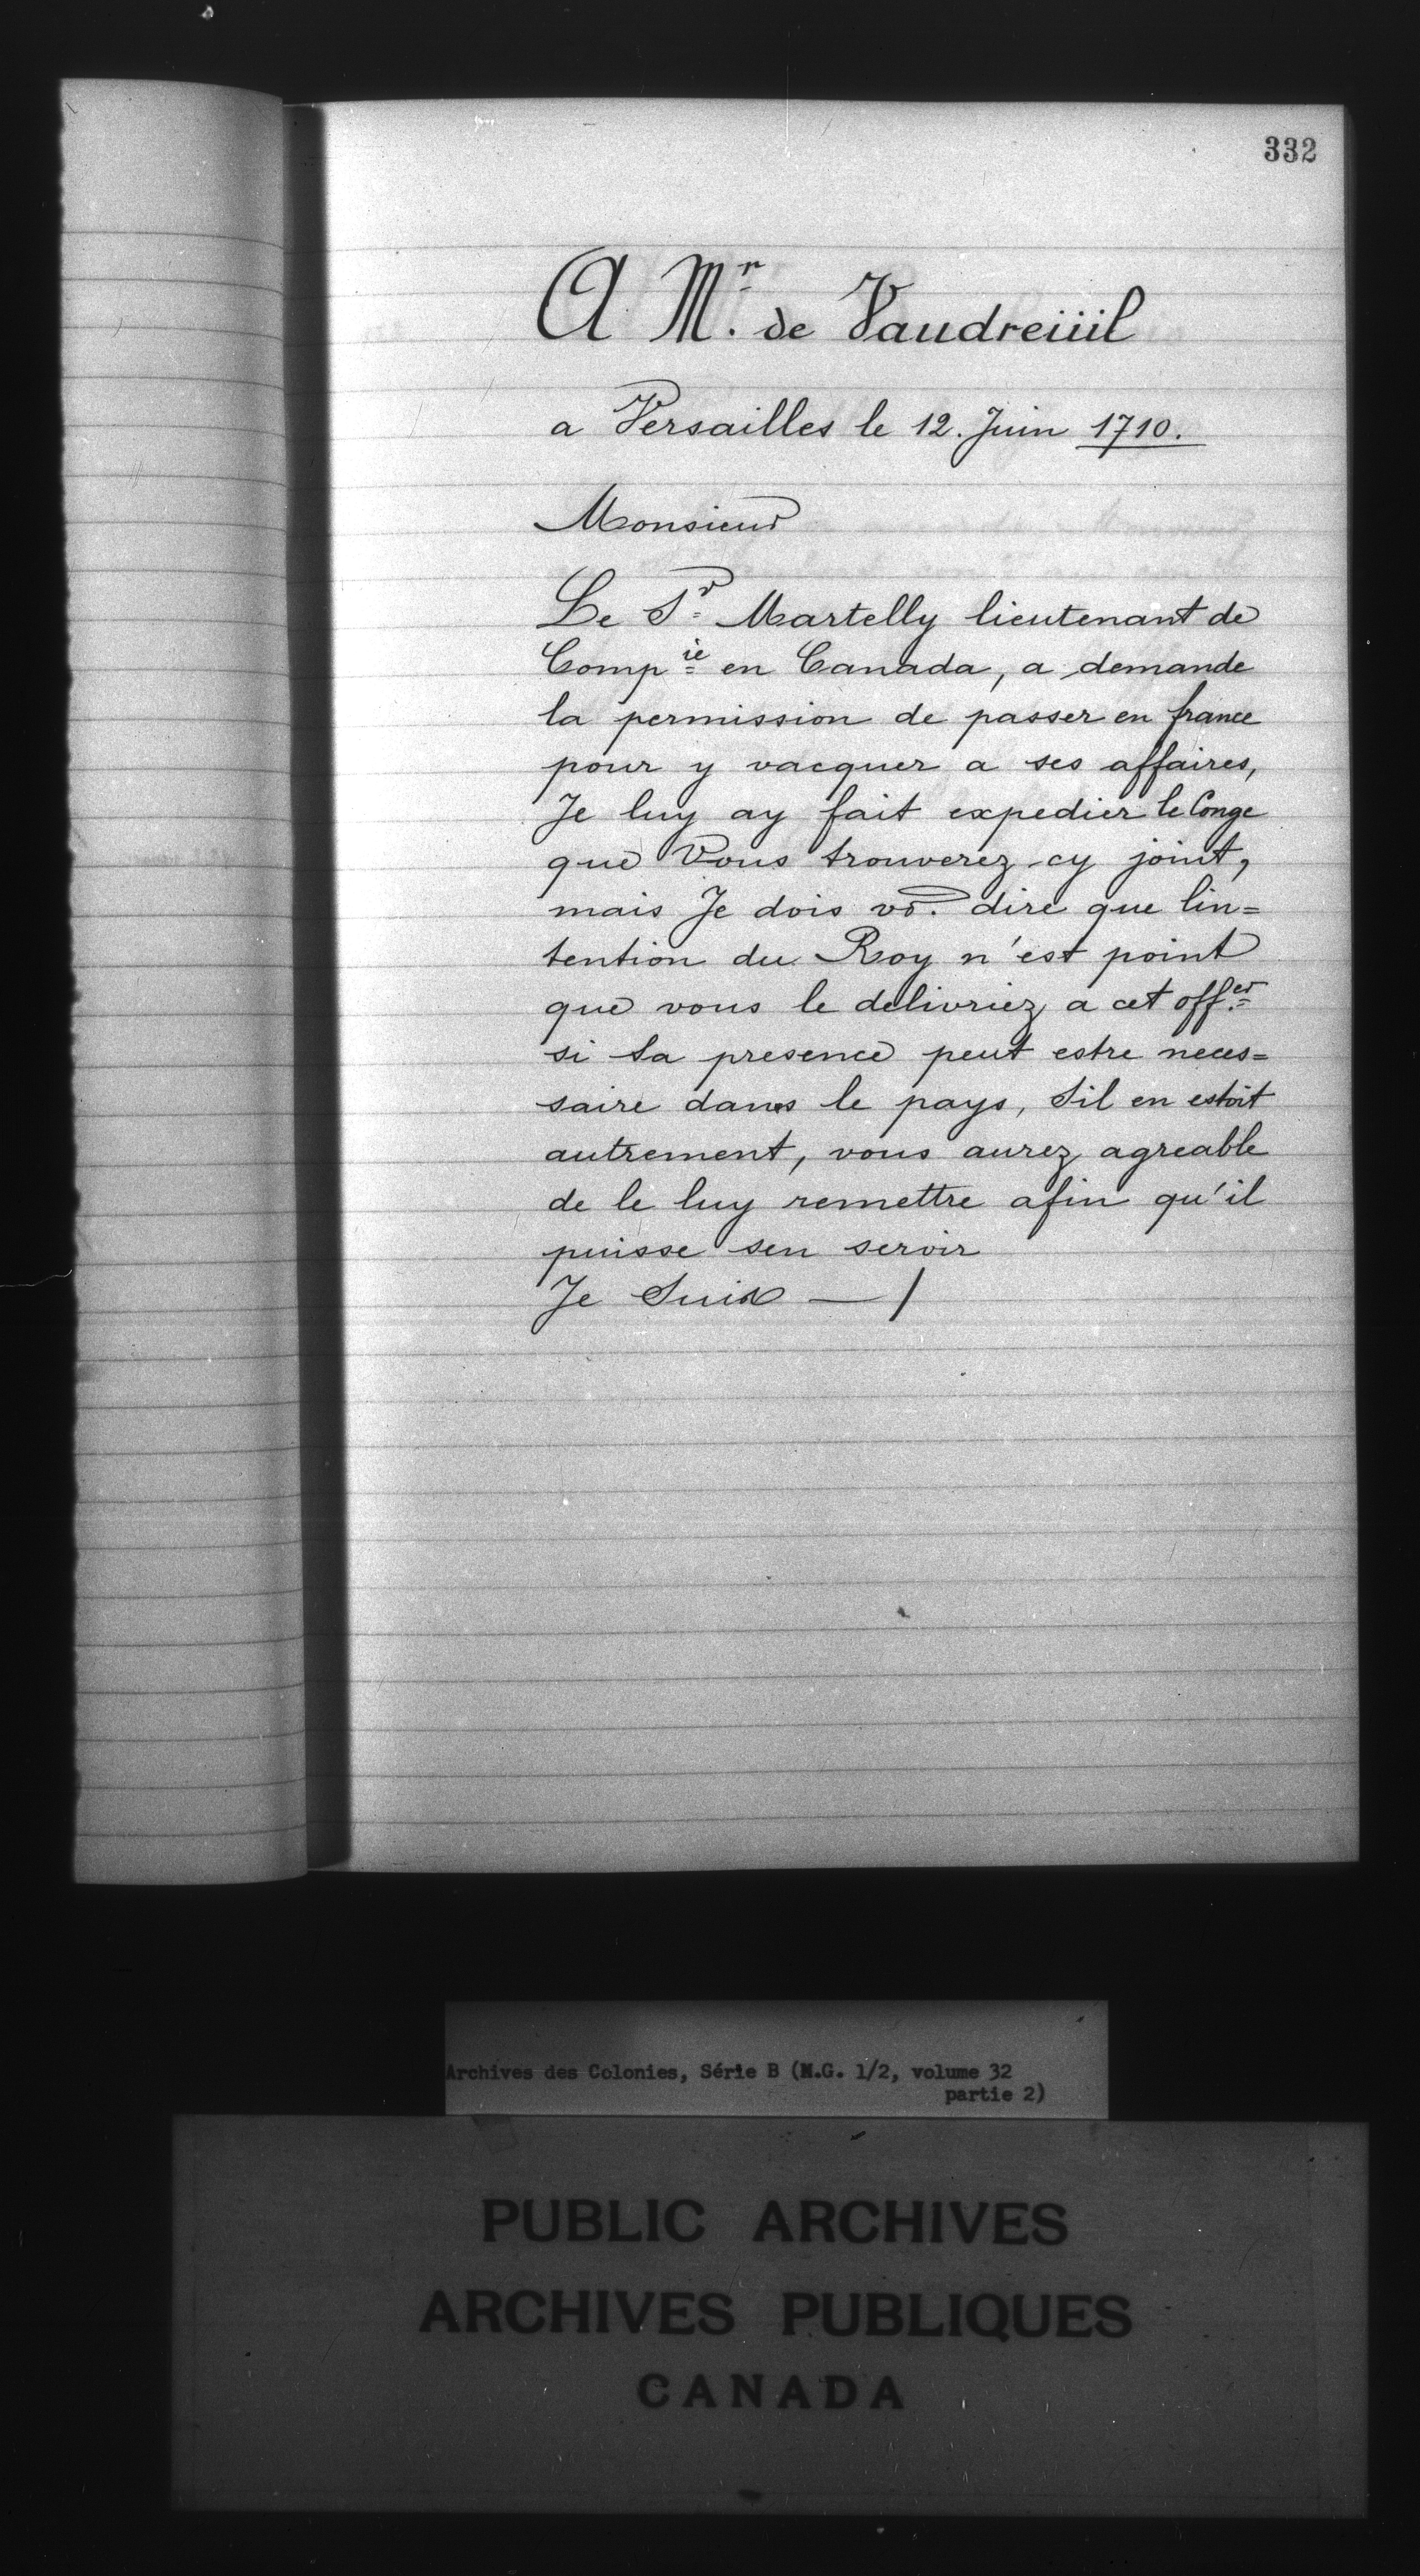 332
A Mr. de Vaudreiiil
a Versailles le 12. Juin 1710.
Monsieur
Le Sr Martelly lieutenant de
Compie en Canada, a demande
la permission de passer en france
pour y vacquer a ses affaires,
Je luy ay fait expedier le Conge
que Vous trouverez cy joint,
mais Je dois vo. dire que lin=
tention du Roy n'est point
que vous le delivriez a cet offer
si sa presence peut estre neces=
saire dans le pays, Sil en estoit
autrement, vous aurez agreable
de le luy remettre afin qu'il
puisse sen servir
Je Suis — /
Archives des Colonies, Série B (M.G. 1/2, volume 32
partie 2)
PUBLIC ARCHIVES
ARCHIVES PUBLIQUES
CANADA